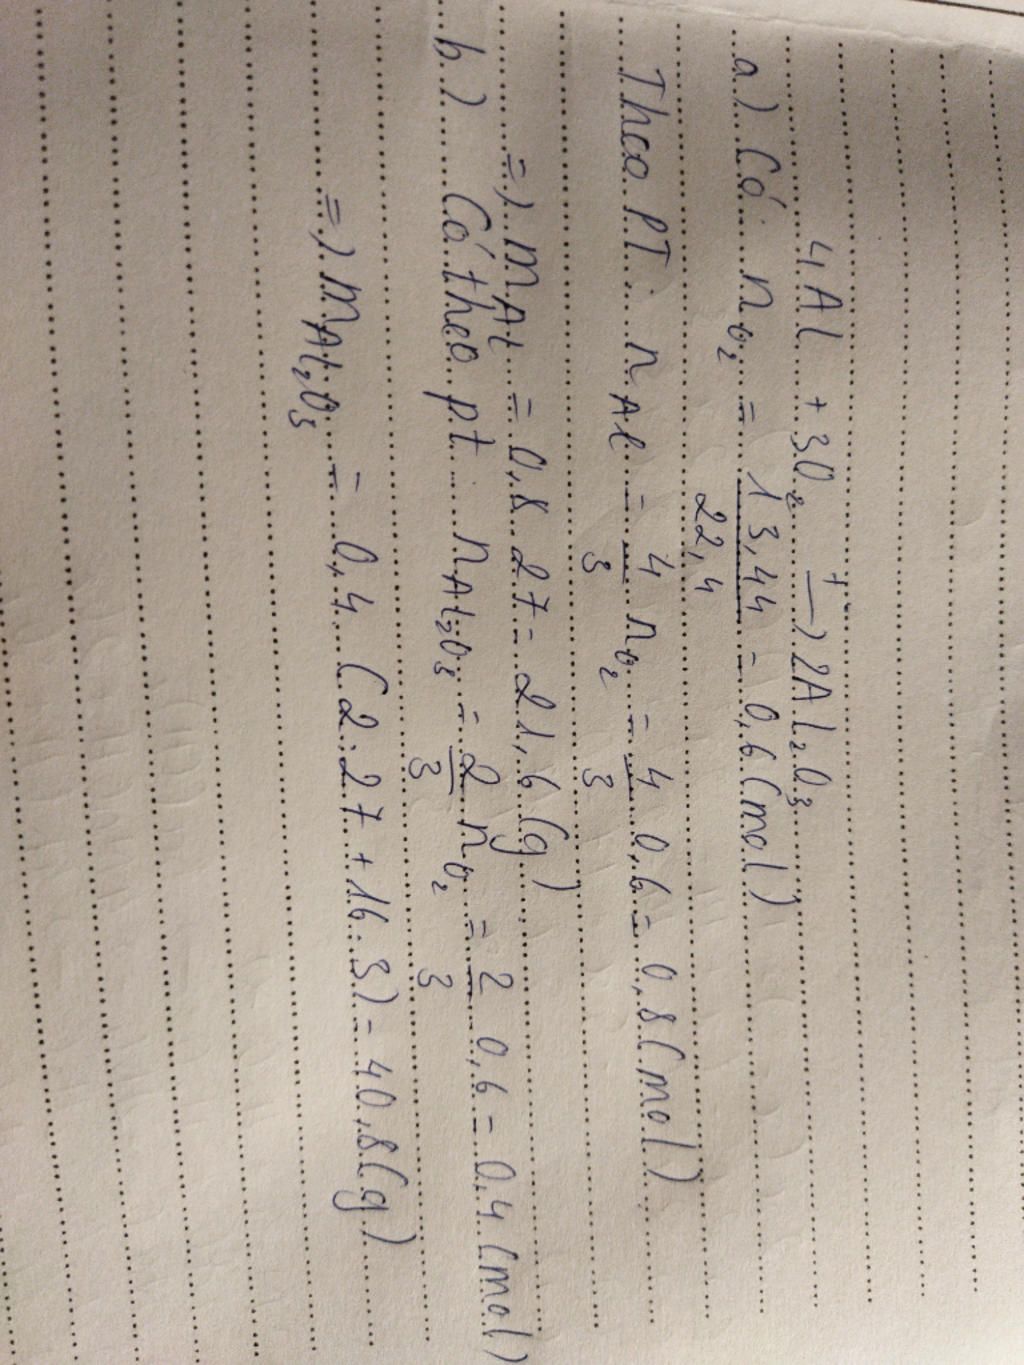 4Al + 3O₂ —t→ 2Al₂O₃
a) Có n O₂ = 13,44 / 22,4 = 0,6 (mol)
Theo PT: n Al = 4/3 n O₂ = 4/3 0,6 = 0,8 (mol)
=) m Al = 0,8.27 = 21,6 (g)
b) Có theo pt: n Al₂O₃ = 2/3 n O₂ = 2/3 0,6 = 0,4 (mol)
=) m Al₂O₃ = 0,4 (2.27 + 16.3) = 40,8 (g)